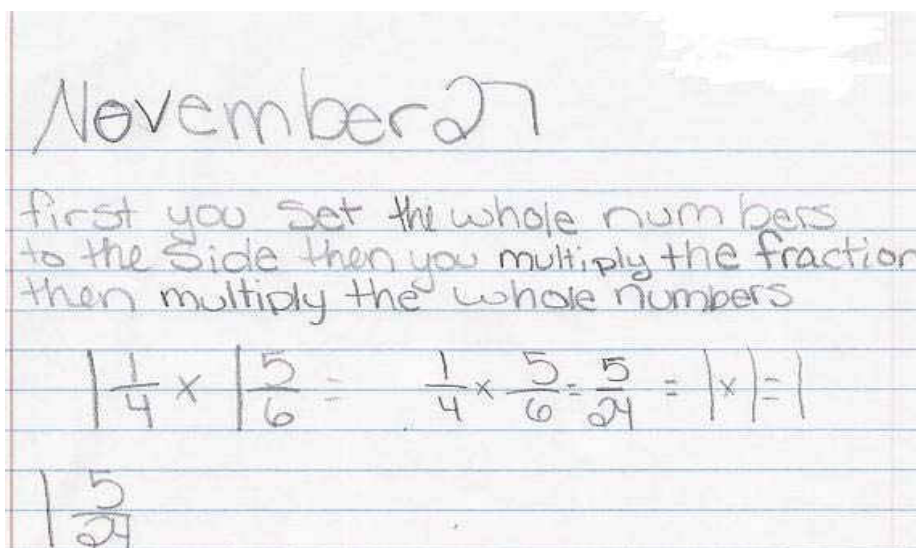 November 27
first you set the whole numbers
to the side then you multiply the fraction
then multiply the whole numbers
1 1/4 × 1 5/6 = 1/4 × 5/6 = 5/24 = 1×1=1
1 5/24